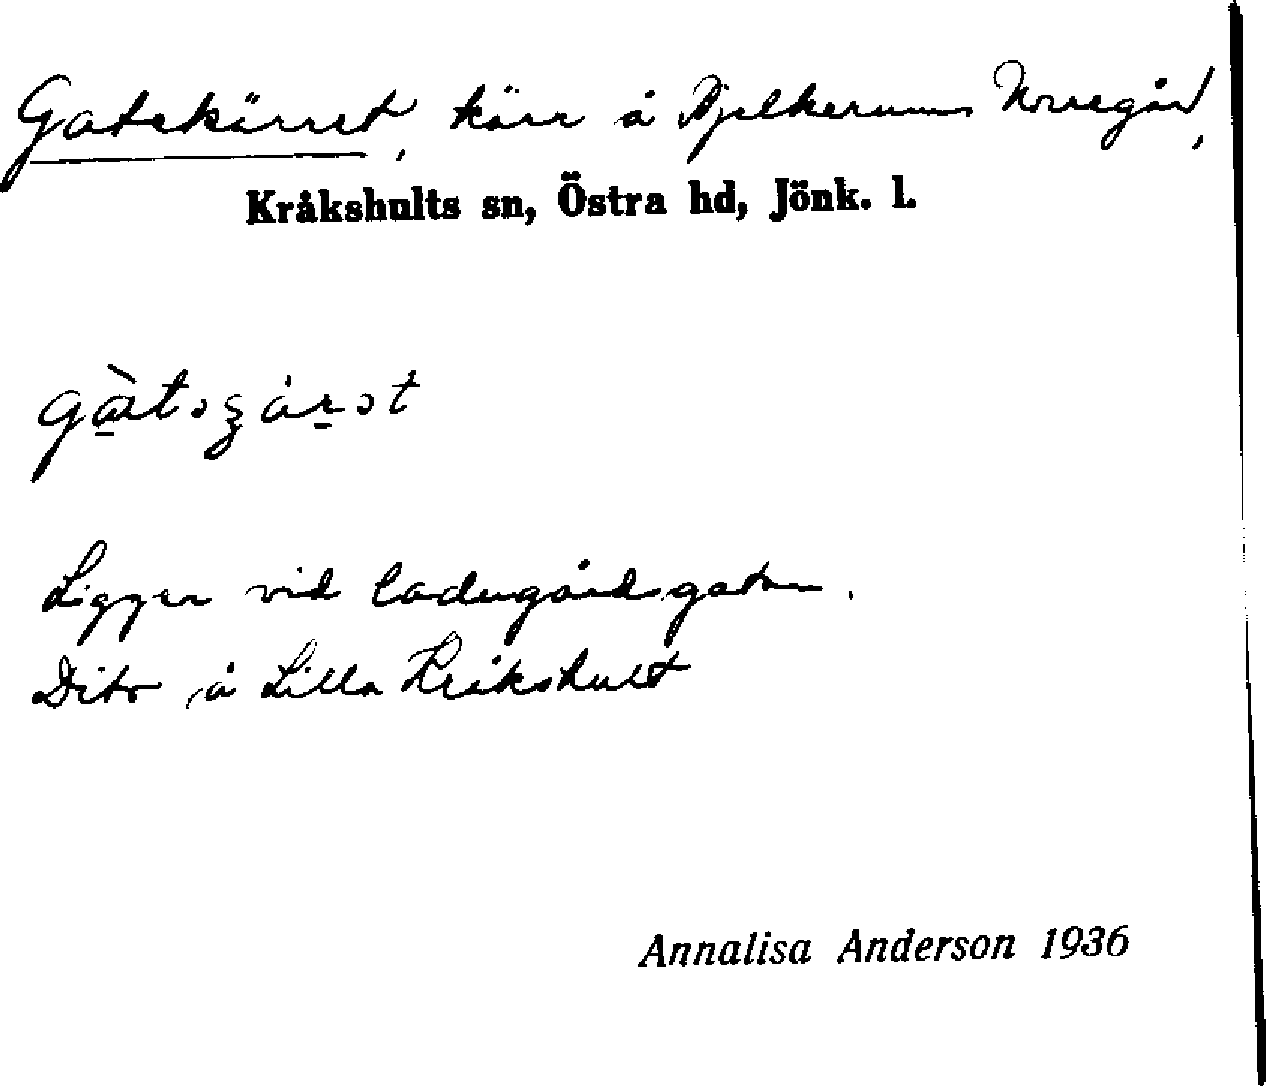 Gatekärret, kärr å Djelkerums Norregård,
Kråkshults sn, Östra hd, Jönk. l.
Ligger vid ladugårdsgatan.
Dito å Lilla Kråkshult
Annalisa Anderson 1936